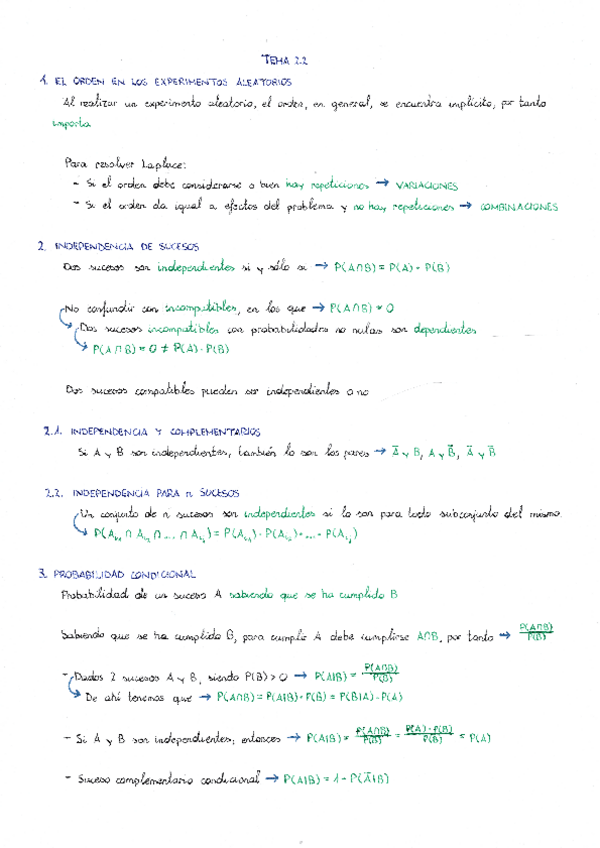 TEMA 2.2
1. EL ORDEN EN LOS EXPERIMENTOS ALEATORIOS
Al realizar un experimento aleatorio, el orden, en general, se encuentra implícito, por tanto
importa
Para resolver Laplace:
- Si el orden debe considerarse o bien hay repeticiones → VARIACIONES
- Si el orden da igual a efectos del problema y no hay repeticiones → COMBINACIONES
2. INDEPENDENCIA DE SUCESOS
Dos sucesos son independientes si y sólo si → P(A∩B) = P(A) · P(B)
No confundir con incompatibles, en los que → P(A∩B) = 0
Dos sucesos incompatibles con probabilidades no nulas son dependientes
P(A∩B) = 0 ≠ P(A) · P(B)
Dos sucesos compatibles pueden ser independientes o no
2.1. INDEPENDENCIA Y COMPLEMENTARIOS
Si A y B son independientes, también lo son los pares → A̅ y B, A y B̅, A̅ y B̅
2.2. INDEPENDENCIA PARA n SUCESOS
Un conjunto de n sucesos son independientes si lo son para todo subconjunto del mismo
3. PROBABILIDAD CONDICIONAL
Probabilidad de un suceso A sabiendo que se ha cumplido B
Sabiendo que se ha cumplido B, para cumplir A debe cumplirse A∩B, por tanto → P(A∩B)/P(B)
- Dados 2 sucesos A y B, siendo P(B) > 0 → P(A|B) = P(A∩B)/P(B)
De ahí tenemos que → P(A∩B) = P(A|B) · P(B) = P(B|A) · P(A)
- Si A y B son independientes, entonces → P(A|B) = P(A∩B)/P(B) = P(A) · P(B)/P(B) = P(A)
- Suceso complementario condicional → P(A|B) = 1 - P(A̅|B)